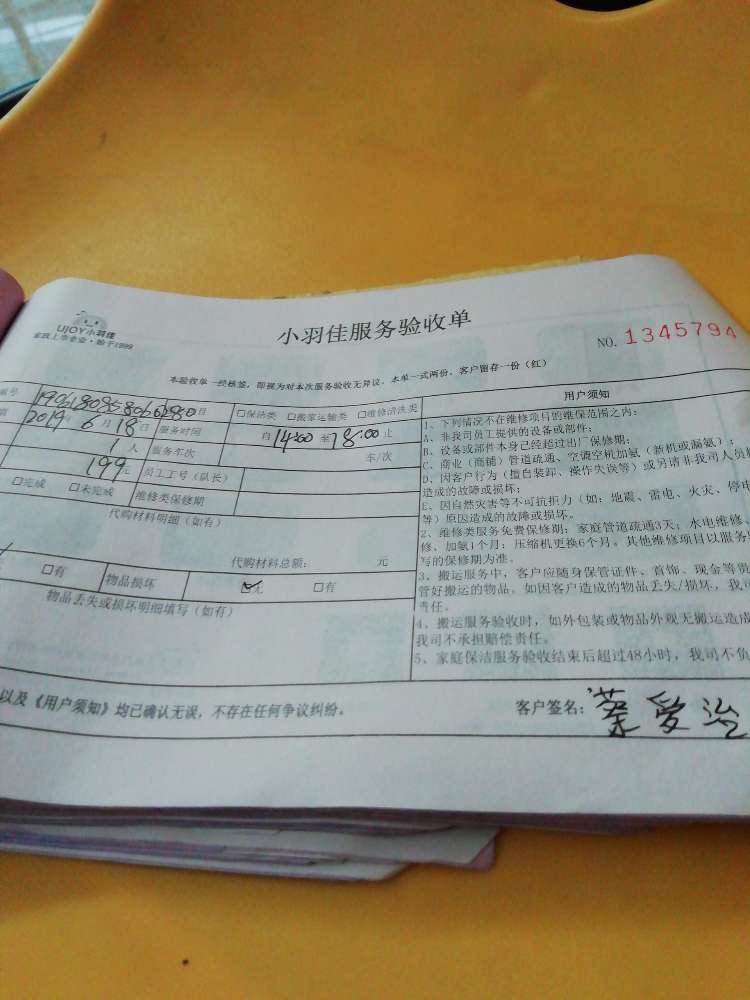 UJOY小羽佳
家政上市企业·始于1999
小羽佳服务验收单
NO. 1345794
本验收单一经核签,即视为对本次服务验收无异议。本单一式两份,客户留存一份(红)
编号
□保洁类 □搬家运输类 □维修清洗类
用户须知
2019年6月18日 服务时间 自14:00至18:00止
1人 服务车次 车/次
199元 员工工号(队长)
□完成 □未完成 维修类保修期
代购材料明细(如有)
代购材料总额: 元
□有 物品损坏 ☑无 □有
物品丢失或损坏明细填写(如有)
1、下列情况不在维修项目的维保范围之内:
A、非我司员工提供的设备或部件;
B、设备或部件本身已经超过出厂保修期;
C、商业(商铺)管道疏通、空调空机加氨(新机或漏氨);
D、因客户行为(擅自装卸、操作失误等)或另请非我司人员
造成的故障或损坏;
E、因自然灾害等不可抗拒力(如:地震、雷电、火灾、停电
等)原因造成的故障或损坏。
2、维修类服务免费保修期:家庭管道疏通3天;水电维修、
修、加氨1个月;压缩机更换6个月。其他维修项目以服务
写的保修期为准。
3、搬运服务中,客户应随身保管证件、首饰、现金等贵
管好搬运的物品。如因客户造成的物品丢失/损坏,我司
责任。
4、搬运服务验收时,如外包装或物品外观无搬运造成
我司不承担赔偿责任。
5、家庭保洁服务验收结束后超过48小时,我司不负
以及《用户须知》均已确认无误,不存在任何争议纠纷。
客户签名:
爱治